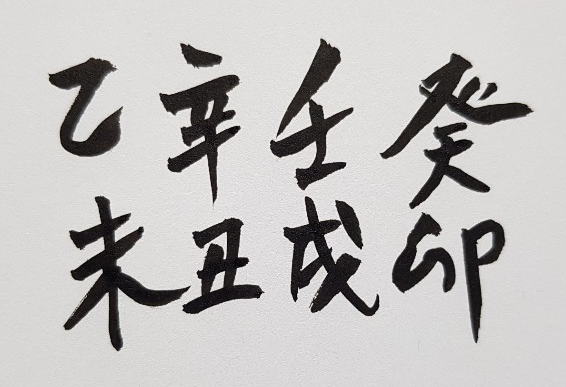 癸卯
壬戌
辛丑
乙未